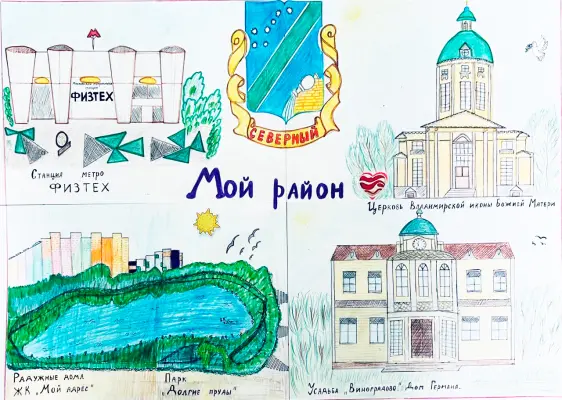 ФИЗТЕХ
СЕВЕРНЫЙ
Станция метро
ФИЗТЕХ
Мой район
Церковь Владимирской иконы Божией Матери
Радужные дома
ЖК „Мой адрес“
Парк
„Долгие пруды“
Усадьба „Виноградово“ Дом Германа.